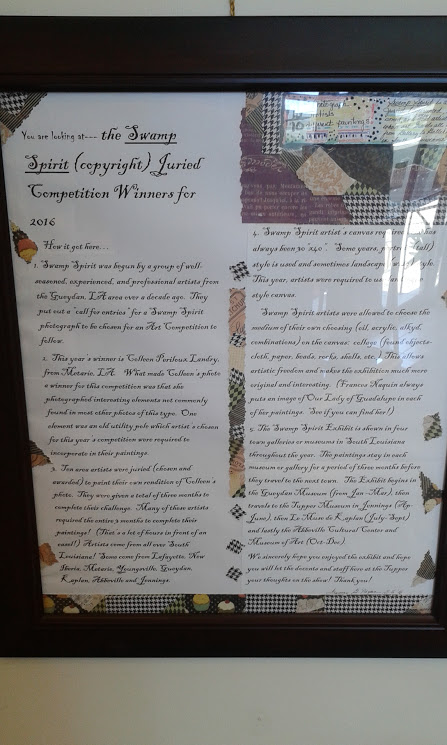 You are looking at--- the Swamp
Spirit (copyright) Juried
Competition Winners for
2016
How it got here...
1. Swamp Spirit was begun by a group of well-
seasoned, experienced, and professional artists from
the Gueydan, LA area over a decade ago. They
put out a "call for entries" for a Swamp Spirit
photograph to be chosen for an Art Competition to
follow.
2. This year's winner is Colleen Perilloux Landry,
from Metairie, LA. What made Colleen's photo
a winner for this competition was that she
photographed interesting elements not commonly
found in most other photos of this type. One
element was an old utility pole which artist's chosen
for this year's competition were required to
incorporate in their paintings.
3. Ten area artists were juried (chosen and
awarded) to paint their own rendition of Colleen's
photo. They were given a total of three months to
complete their challenge. Many of these artists
required the entire 3 months to complete their
paintings! (That's a lot of hours in front of an
easel!) Artists come from all over South
Louisiana! Some come from Lafayette, New
Iberia, Metairie, Youngsville, Gueydan,
Kaplan, Abbeville and Jennings.
4. Swamp Spirit artist's canvas
always been 30"x40". Some years, portrait (tall)
style is used and sometimes landscape style.
This year, artists were required to use
style canvas.
Swamp Spirit artists were allowed to choose the
medium of their own choosing (oil, acrylic, alkyd,
combinations) on the canvas: collage (found objects-
cloth, paper, beads, rocks, shells, etc.) This allows
artistic freedom and makes the exhibition much more
original and interesting. (France Naquin always
puts an image of Our Lady of Guadalupe in each
of her paintings. See if you can find her!)
5. The Swamp Spirit Exhibit is shown in four
town galleries or museums in South Louisiana
throughout the year. The paintings stay in each
museum or gallery for a period of three months before
they travel to the next town. The Exhibit begins in
the Gueydan Museum (from Jan-Mar), then
travels to the Tupper Museum in Jennings (Ap-
June), then Le Musee de Kaplan (July-Sept)
and lastly the Abbeville Cultural Centre and
Museum of Art (Oct-Dec).
We sincerely hope you enjoyed the exhibit and hope
you will let the docents and staff here at the Tupper
your thoughts on the show! Thank you!